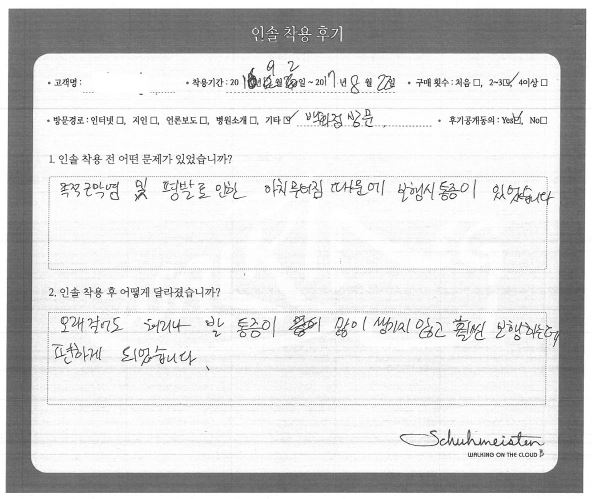 인솔 착용 후기
• 고객명: • 착용기간: 2016년 9월 2일 ~ 2017년 8월 22일 • 구매 횟수: 처음□, 2~3☑, 4이상□
• 방문경로: 인터넷□, 지인□, 언론보도□, 병원소개□, 기타☑ 백화점 방문 • 후기공개동의: Yes☑, No□
1. 인솔 착용 전 어떤 문제가 있었습니까?
족적근막염 및 평발로 인한 아치무너짐 때문에 보행시 통증이 있었습니다
2. 인솔 착용 후 어떻게 달라졌습니까?
오래 걸어도 허리나 발 통증이 많이 생기지 않고 훨씬 보행하는데
편하게 되었습니다.
Schuhmeister
WALKING ON THE CLOUD B